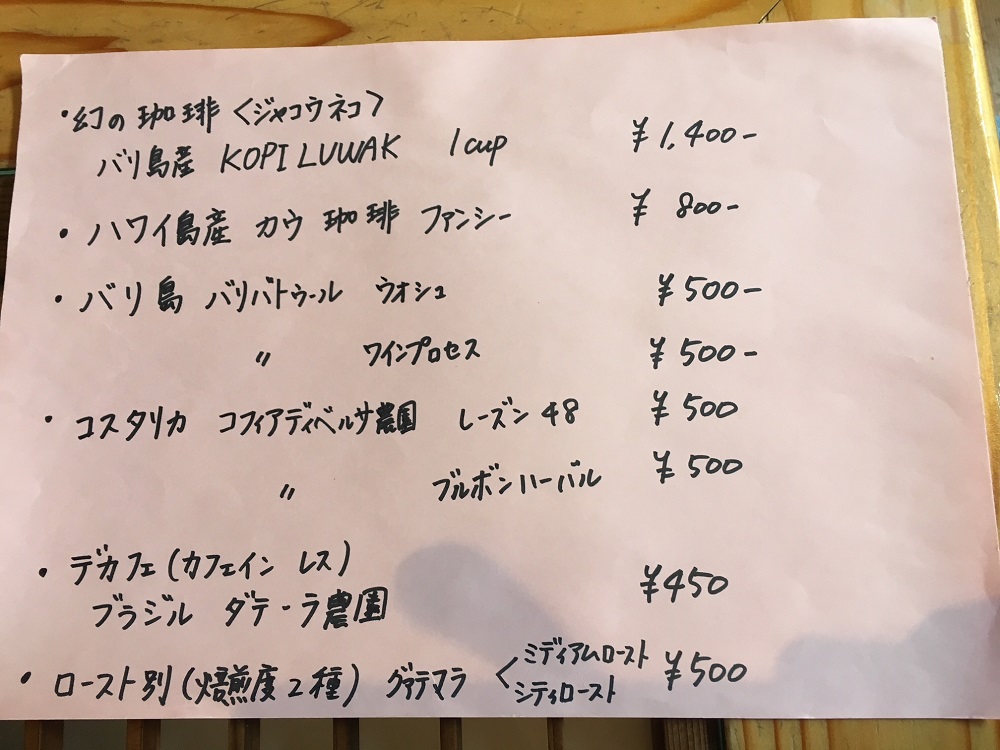 ・幻の珈琲〈ジャコウネコ〉
バリ島産 KOPI LUWAK 1cup ¥1,400-
・ハワイ島産 カウ 珈琲 ファンシー ¥800-
・バリ島 バリバトゥール ウオシュ ¥500-
〃 ワインプロセス ¥500-
・コスタリカ コフィアディベルサ農園 レーズン48 ¥500
〃 ブルボンハーバル ¥500
・デカフェ(カフェイン レス)
ブラジル ダテーラ農園 ¥450
・ロースト別(焙煎度2種) グァテマラ < ミディアムロースト ¥500
シティロースト